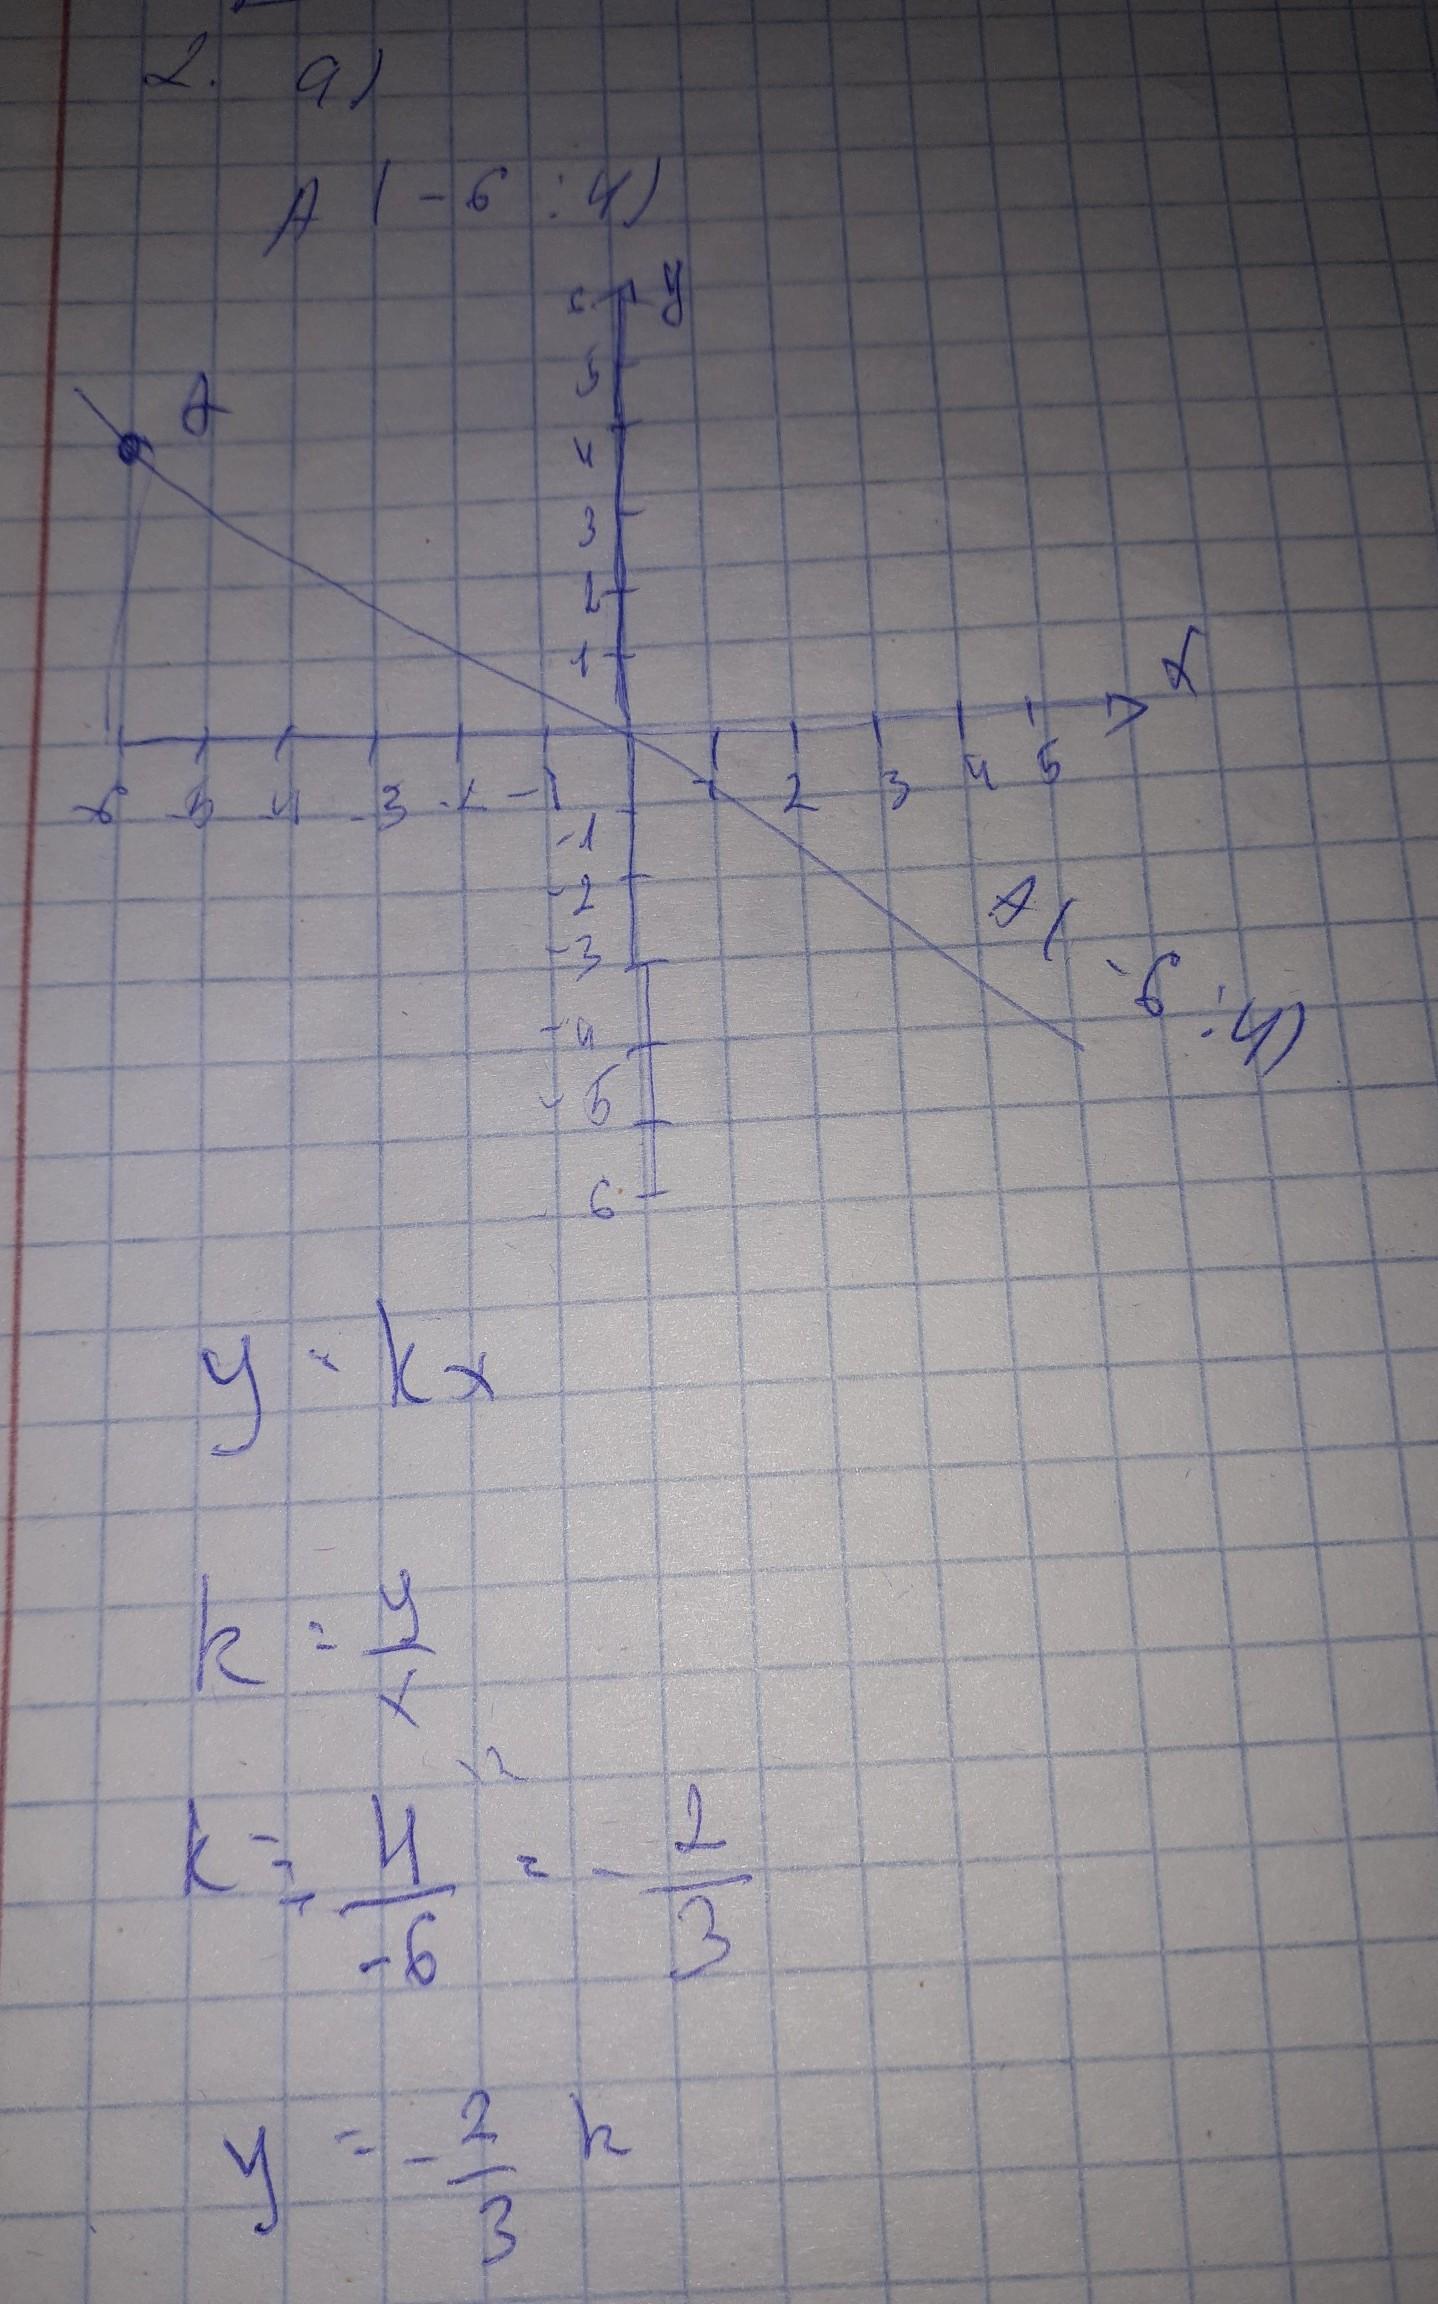 2. a)
A (-6 ; 4)
6 y
5
A
4
3
2
1
x
-6 -5 -4 -3 -2 -1 1 2 3 4 5
-1
-2
-3
A (-6 ; 4)
-4
-5
6
y = kx
k = y/x
k = 4/-6 = -2/3
y = -2/3 k